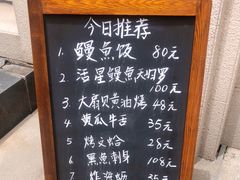 今日推荐
1. 鳗魚饭 80元
2. 活星鳗魚天妇罗 100元
3. 大扇贝黄油烤 48元
4. 黄瓜牛舌 35元
5. 烤文蛤 28元
6. 黑魚刺身 108元
7. 炸海蛎 35元